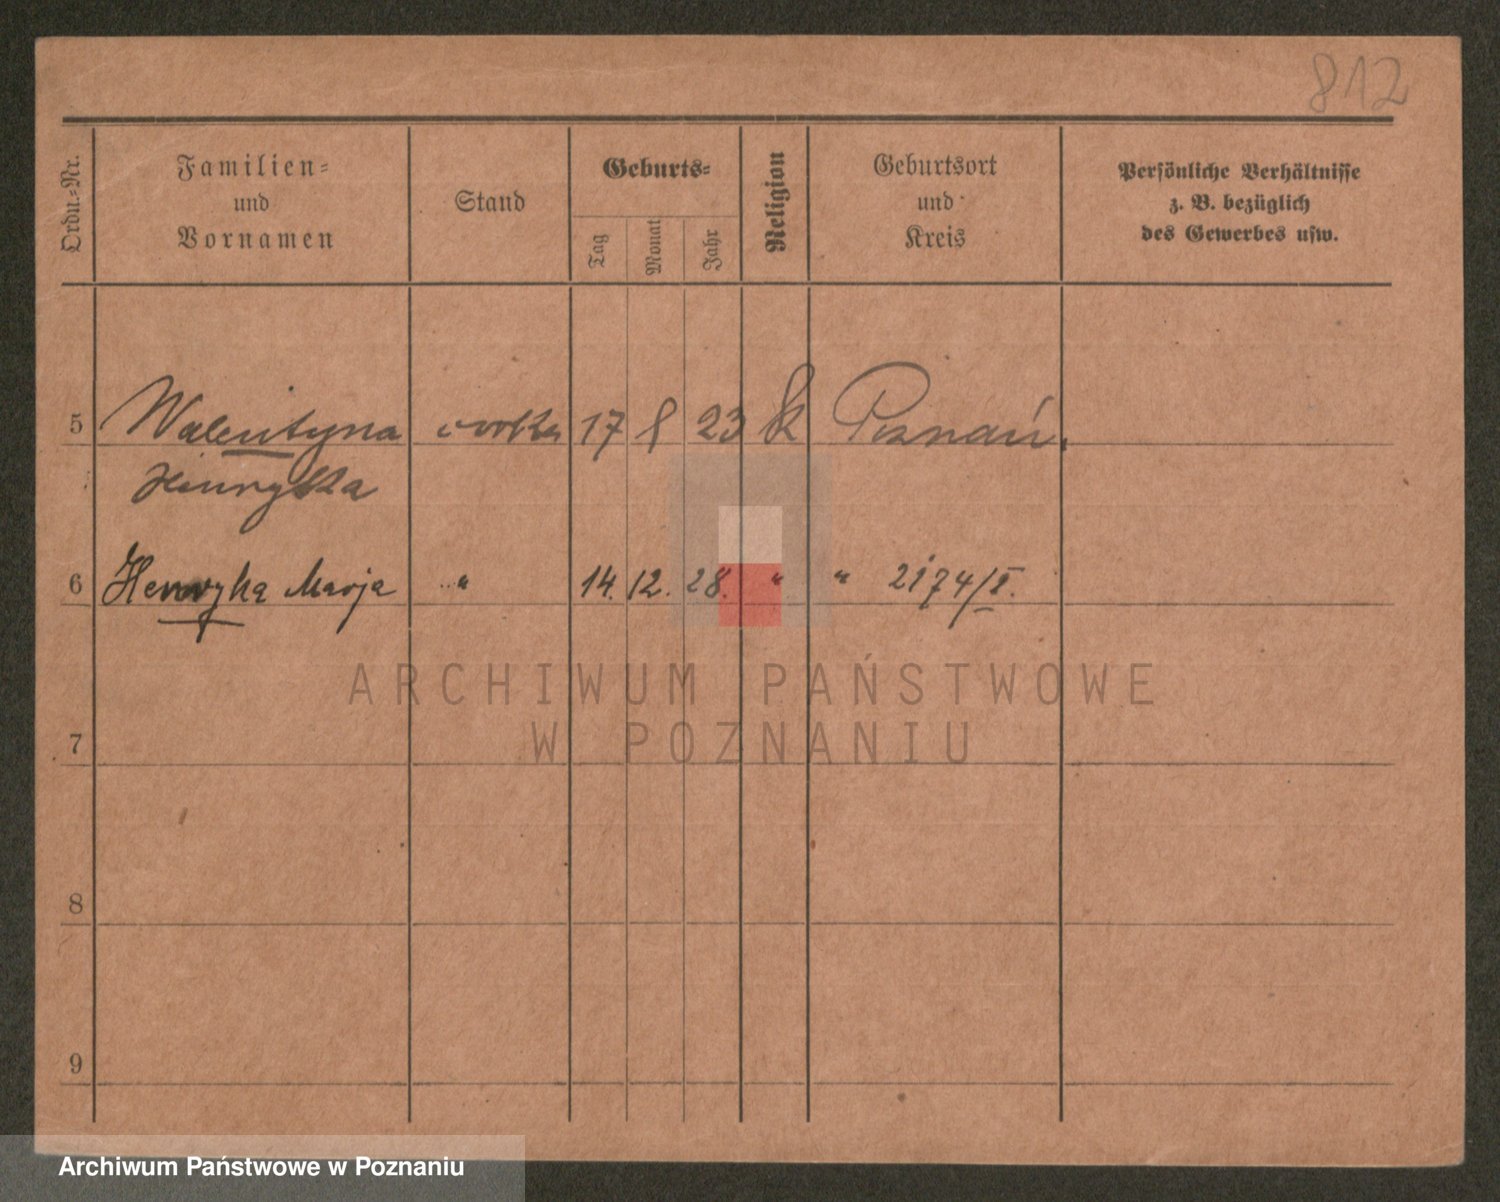 812
Ordn.-Nr.
Familien-
und
Vornamen
Stand
Geburts-
Tag
Monat
Jahr
Religion
Geburtsort
und
Kreis
Persönliche Verhältnisse
z. B. bezüglich
des Gewerbes usw.
5 Walentyna 17 8 23 k Poznań.
Henryka
6 Henryka Marja " 14. 12. 28. " " 2174/I.
7
8
9
ARCHIWUM PAŃSTWOWE
W POZNANIU
Archiwum Państwowe w Poznaniu